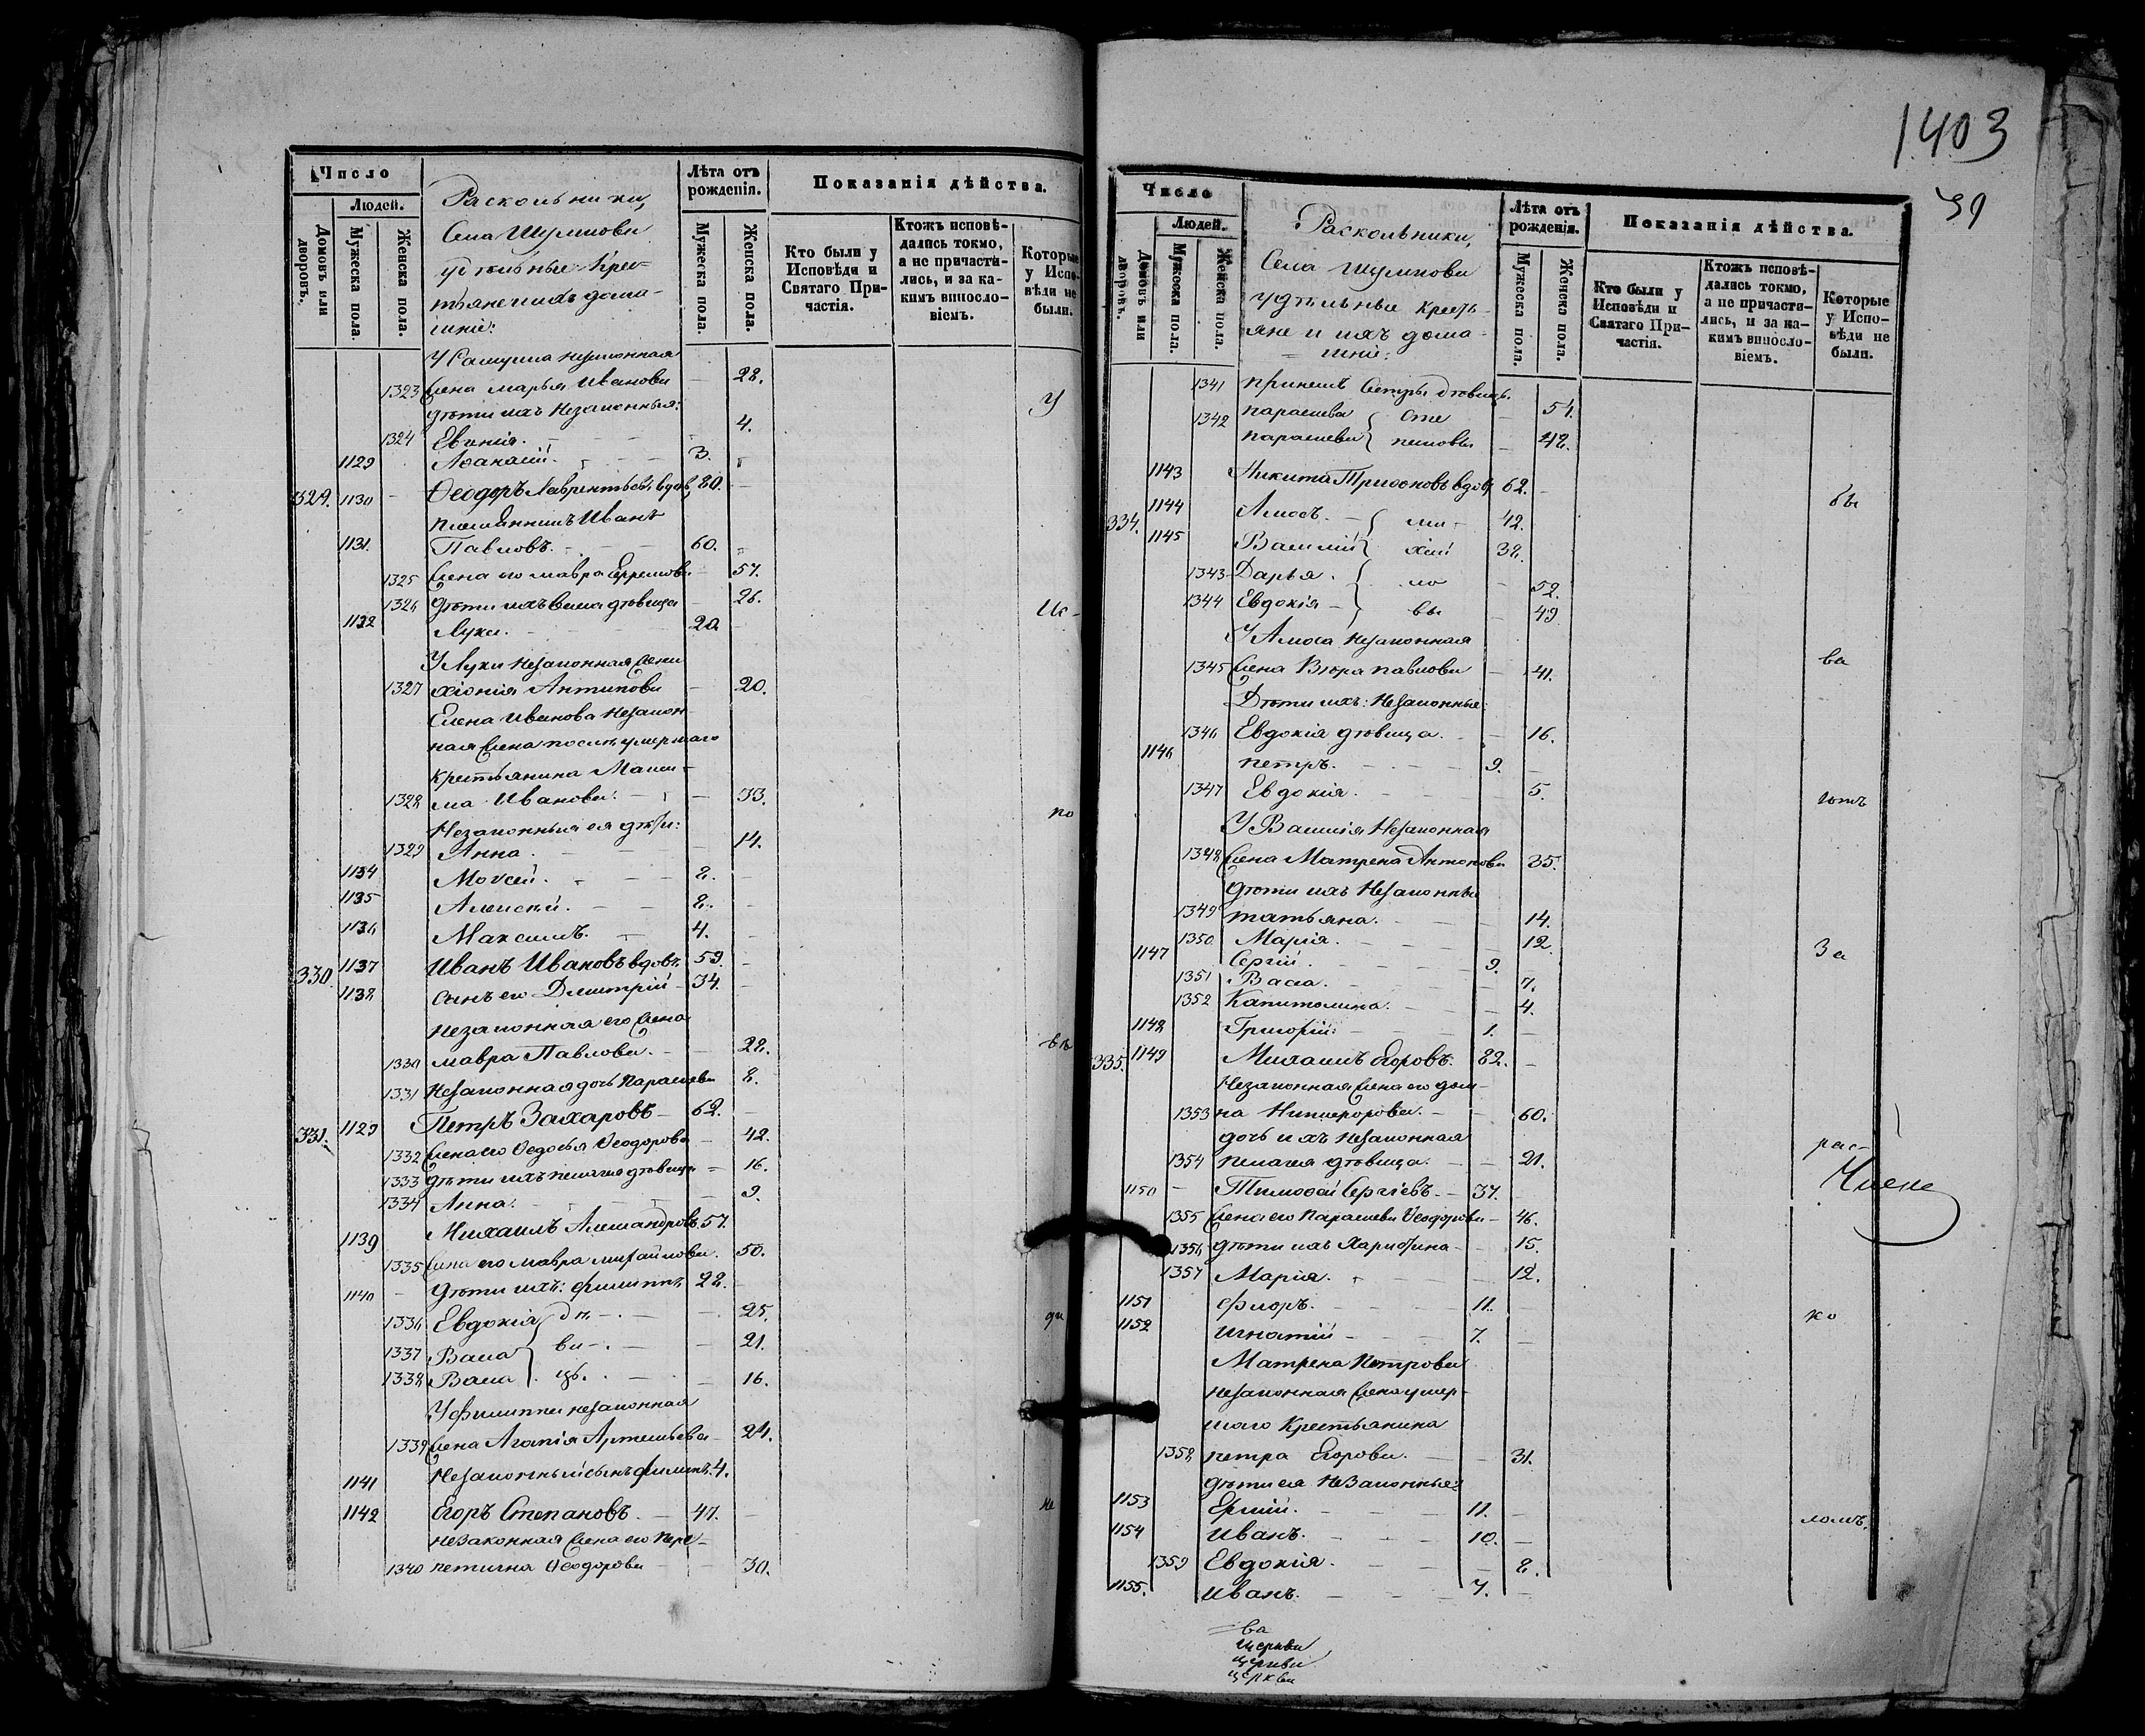 Число
Людей.
Домовъ или дворовъ.
Мужеска пола.
Женска пола.
Раскольники,
Села Шумкова
удѣльные Кре-
стьяне и ихъ дома-
шніе:
Лѣта отъ рожденія.
Мужеска пола.
Женска пола.
Показанія дѣйства.
Кто были у Исповѣди и Святаго При-частія.
Ктожъ исповѣ-дались токмо, а не причасти-лись, и за ка-кимъ винсло-віемъ.
Которые у Испо-вѣди не были.
незаконная
1323 жена Марья Иванова 28.
У
дѣти ихъ незаконныя:
1324 Евгенія. 4.
1129 Аѳанасій. 3.
329. 1130 Ѳеодоръ Лаврентьевъ вдовъ 80.
племянникъ Иванъ
1131. Павловъ. 60.
1325 жена его Мавра 57.
1326 дѣти ихъ дѣвица 26.
Ис-
1132 Лука. 20
У Луки незаконная жена
1327 Хіонія Антипова 20.
Елена Иванова незакон
ная жена послѣ умершаго
крестьянина Макси-
1328 ма Иванова. 33.
по
Незаконныя ея дѣти:
1329 Анна. 14.
1134 Моѵсей. 8.
1135 Алексѣй. 8.
1136 Максимъ. 4.
330 1137 Иванъ Ивановъ вдовъ 59.
1138 сынъ его Димитрій 34.
незаконная его жена
вѣ
1330 Мавра Павлова. 28.
1331 Незаконная дочь Параскева 8.
331. 1129 Петръ Захаровъ 62.
1332 жена его Ѳедосья Ѳеодорова 42.
1333 дѣти ихъ Пелагея дѣвица 16.
1334 Анна. 9.
1139 Михаилъ Александровъ 57.
1335 жена его Мавра Михайлова. 50.
1140 дѣти ихъ: Филиппъ 28.
1336 Евдокія дѣ- 25.
ди
1337 Васса ви- 21.
1338 Васса цы. 16.
У Филиппа незаконная
1339 жена Агапія Артемьева 24.
1141 Незаконный сынъ Филиппъ 4.
1142 Егоръ Степановъ. 47.
не
незаконная жена его Пере-
1340 петигна Ѳеодорова 30.
1403
39
Число
Людей.
Домовъ или дворовъ.
Мужеска пола.
Женска пола.
Раскольники,
Села Шумкова
удѣльные кресть-
яне и ихъ дома-
шніе:
Лѣта отъ рожденія.
Мужеска пола.
Женска пола.
Показанія дѣйства.
Кто были у Исповѣди и Святаго При-частія.
Ктожъ исповѣ-дались токмо, а не причасти-лись, и за ка-кимъ винсло-віемъ.
Которые у Испо-вѣди не были.
1341 сестры дѣвицы.
1342 Параскева Сте 54.
Параскева пановы 48.
1143 Никита Трифоновъ вдовъ 62.
бы
334. 1144 Амосъ. ми- 42.
1145 Василій хай 38.
1343 Дарья. ло 52.
1344 Евдокія вы 49
У Амоса незаконная
ва
1345 жена Вѣра Павлова 41.
Дѣти ихъ: незаконные:
1346 Евдокія дѣвица. 16.
1146 Петръ. 9.
1347 Евдокія. 5.
ютъ
У Василія незаконная
1348 жена Матрена Антонова 35.
дѣти ихъ незаконные
1349 Татьяна. 14.
1350 Марія. 12.
За
1147 Сергій. 9.
1351 Васса. 7.
1352 Капитолина. 4.
1148 Григорій. 1.
335. 1149 Михаилъ Егоровъ. 82.
Незаконная жена его Дом-
1353 на Никифорова. 60.
дочь ихъ незаконная
рас-
1354 Пелагея дѣвица. 21.
1150 Тимоѳей Сергіевъ. 37.
1355 жена его Параскева Ѳеодорова 46.
1356 дѣти ихъ Харитина 15.
1357 Марія. 12.
1151 Флоръ. 11.
ко
1152 Игнатій 7.
Матрена Петрова
незаконная жена умер-
шаго крестьянина
1358 Петра Егорова. 31.
дѣти ея незаконные:
1153 Ермій. 11.
ломъ.
1154 Иванъ. 10.
1359 Евдокія. 8.
1155. Иванъ. 7.
ва
церкви
церкви
церкви